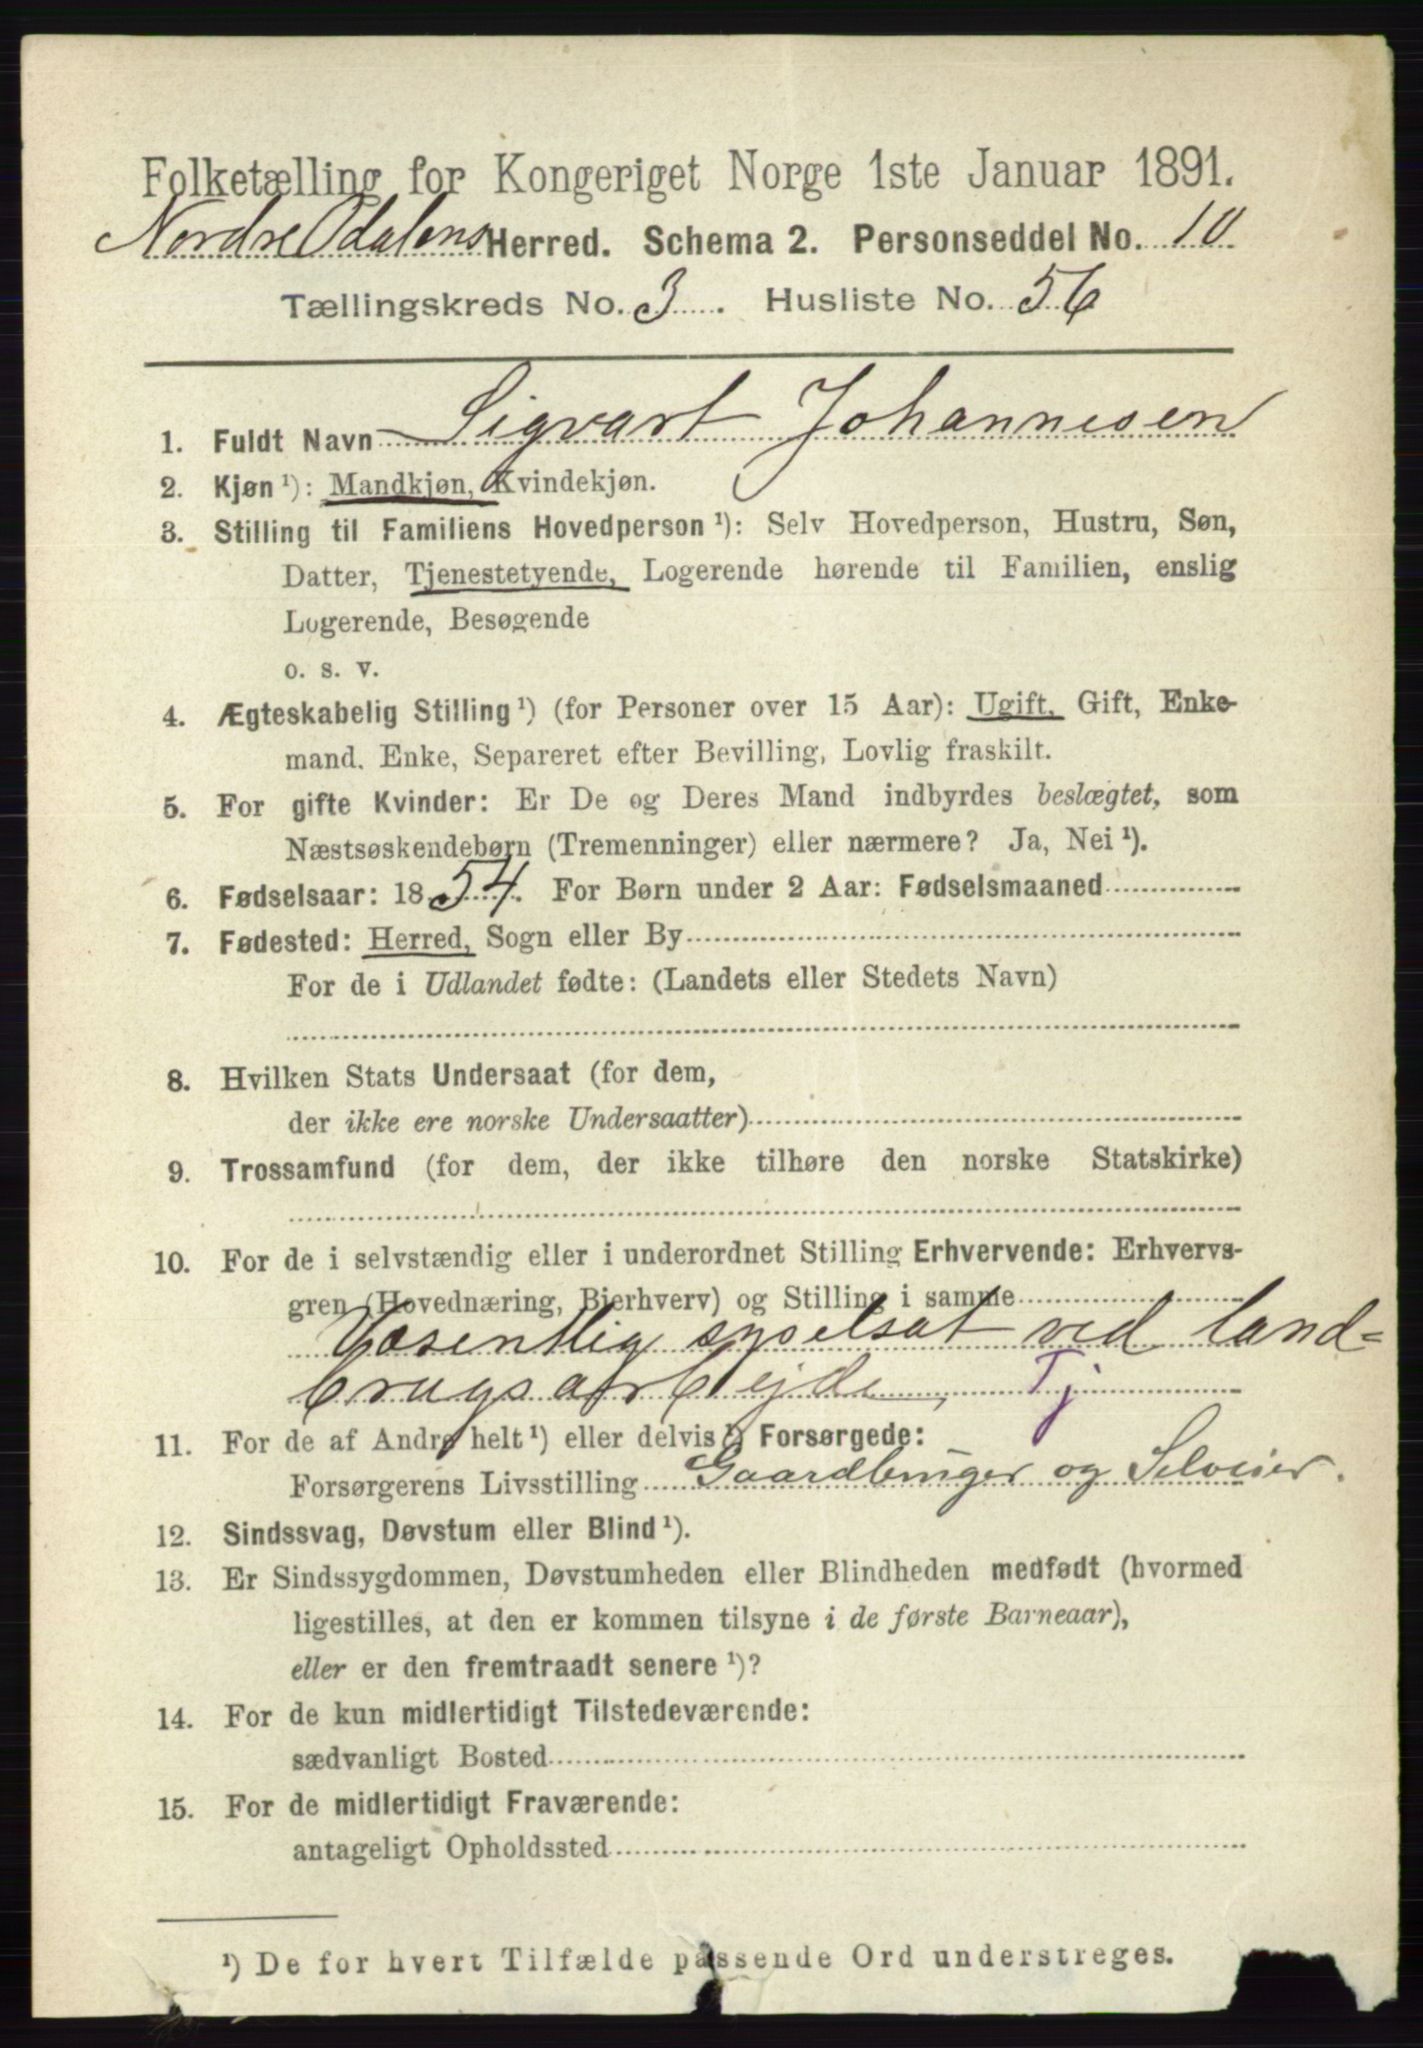 Folketælling for Kongeriget Norge 1ste Januar 1891.
Nordre Odalens Herred. Schema 2. Personseddel No. 10
Tællingskreds No. 3. Husliste No. 56
1. Fuldt Navn Sigvart Johannesen
2. Kjøn¹): Mandkjøn, Kvindekjøn.
3. Stilling til Familiens Hovedperson¹): Selv Hovedperson, Hustru, Søn,
Datter, Tjenestetyende, Logerende hørende til Familien, enslig
Logerende, Besøgende
o. s. v.
4. Ægteskabelig Stilling¹) (for Personer over 15 Aar): Ugift, Gift, Enke-
mand, Enke, Separeret efter Bevilling, Lovlig fraskilt.
5. For gifte Kvinder: Er De og Deres Mand indbyrdes beslægtet, som
Næstsøskendebørn (Tremenninger) eller nærmere? Ja, Nei¹).
6. Fødselsaar: 1854. For Børn under 2 Aar: Fødselsmaaned
7. Fødested: Herred, Sogn eller By
For de i Udlandet fødte: (Landets eller Stedets Navn)
8. Hvilken Stats Undersaat (for dem,
der ikke ere norske Undersaatter)
9. Trossamfund (for dem, der ikke tilhøre den norske Statskirke)
10. For de i selvstændig eller i underordnet Stilling Erhvervende: Erhvervs-
gren (Hovednæring, Bierhverv) og Stilling i samme
Væsentlig sysselsat ved land=
brugsarbejde, Tj
11. For de af Andre helt¹) eller delvis¹) Forsørgede:
Forsørgerens Livsstilling Gaardbruger og Selveier.
12. Sindssvag, Døvstum eller Blind¹).
13. Er Sindssygdommen, Døvstumheden eller Blindheden medfødt (hvormed
ligestilles, at den er kommen tilsyne i de første Barneaar),
eller er den fremtraadt senere¹)?
14. For de kun midlertidigt Tilstedeværende:
sædvanligt Bosted
15. For de midlertidigt Fraværende:
antageligt Opholdssted
¹) De for hvert Tilfælde passende Ord understreges.